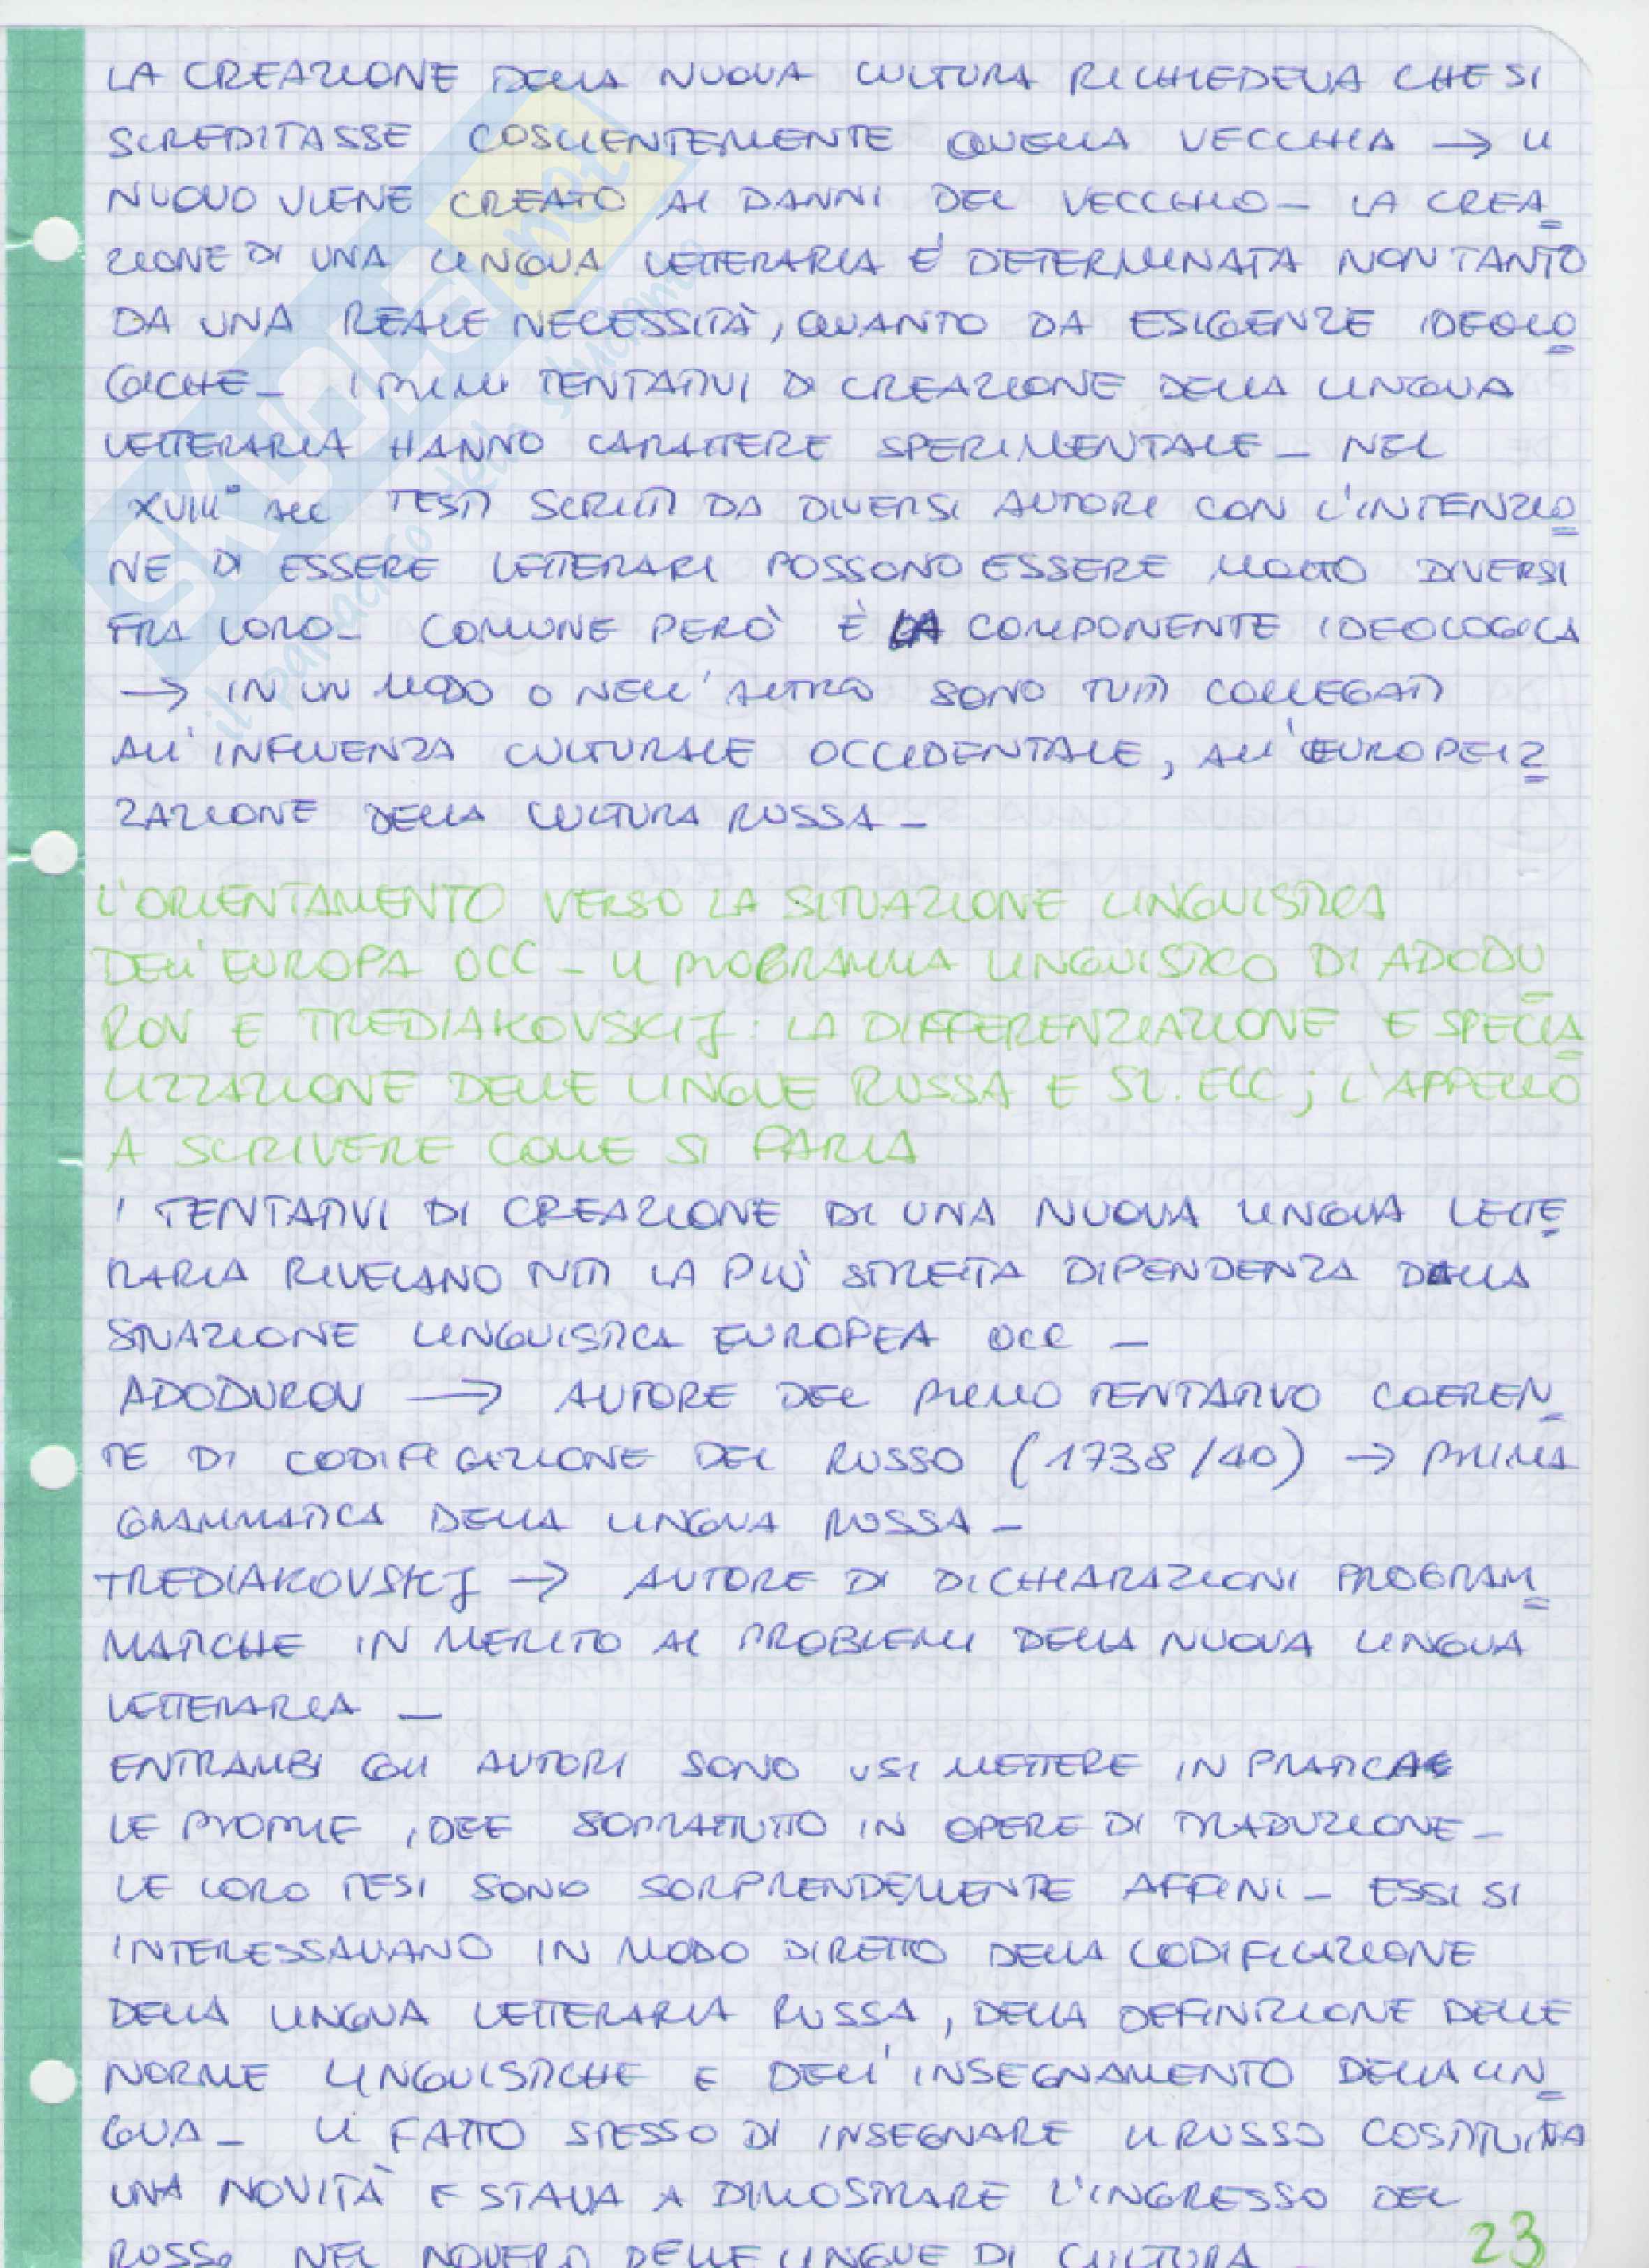 LA CREAZIONE DELLA NUOVA CULTURA RICHIEDEVA CHE SI
SCREDITASSE COSCIENTEMENTE QUELLA VECCHIA → IL
NUOVO VIENE CREATO AI DANNI DEL VECCHIO – LA CREA
ZIONE DI UNA LINGUA LETTERARIA È DETERMINATA NON TANTO
DA UNA REALE NECESSITÀ, QUANTO DA ESIGENZE IDEOLO
GICHE – I PRIMI TENTATIVI DI CREAZIONE DELLA LINGUA
LETTERARIA HANNO CARATTERE SPERIMENTALE – NEL
XVIII° sec TESTI SCRITTI DA DIVERSI AUTORI CON L'INTENZIO
NE DI ESSERE LETTERARI POSSONO ESSERE MOLTO DIVERSI
FRA LORO – COMUNE PERÒ È LA COMPONENTE IDEOLOGICA
→ IN UN MODO O NELL'ALTRO SONO TUTTI COLLEGATI
ALL'INFLUENZA CULTURALE OCCIDENTALE, ALL'EUROPEIZ
ZAZIONE DELLA CULTURA RUSSA –
L'ORIENTAMENTO VERSO LA SITUAZIONE LINGUISTICA
DELL'EUROPA OCC – IL PROGRAMMA LINGUISTICO DI ADODU
ROV E TREDIAKOVSKIJ: LA DIFFERENZIAZIONE E SPECIA
LIZZAZIONE DELLE LINGUE RUSSA E SL. ECC; L'APPELLO
A SCRIVERE COME SI PARLA
I TENTATIVI DI CREAZIONE DI UNA NUOVA LINGUA LETTE
RARIA RIVELANO TUTTI LA PIÙ STRETTA DIPENDENZA DALLA
SITUAZIONE LINGUISTICA EUROPEA OCC –
ADODUROV → AUTORE DEL PRIMO TENTATIVO COEREN
TE DI CODIFICAZIONE DEL RUSSO (1738/40) → PRIMA
GRAMMATICA DELLA LINGUA RUSSA –
TREDIAKOVSKIJ → AUTORE DI DICHIARAZIONI PROGRAM
MATICHE IN MERITO AI PROBLEMI DELLA NUOVA LINGUA
LETTERARIA –
ENTRAMBI GLI AUTORI SONO USI METTERE IN PRATICA
LE PROPRIE IDEE SOPRATTUTTO IN OPERE DI TRADUZIONE –
LE LORO TESI SONO SORPRENDEMENTE AFFINI – ESSI SI
INTERESSAVANO IN MODO DIRETTO DELLA CODIFICAZIONE
DELLA LINGUA LETTERARIA RUSSA, DELLA DEFINIZIONE DELLE
NORME LINGUISTICHE E DELL'INSEGNAMENTO DELLA LIN
GUA – IL FATTO STESSO DI INSEGNARE IL RUSSO COSTITUIVA
UNA NOVITÀ E STAVA A DIMOSTRARE L'INGRESSO DEL
RUSSO NEL NOVERO DELLE LINGUE DI CULTURA –
23
SKUOLA.net
il paparazzo dello